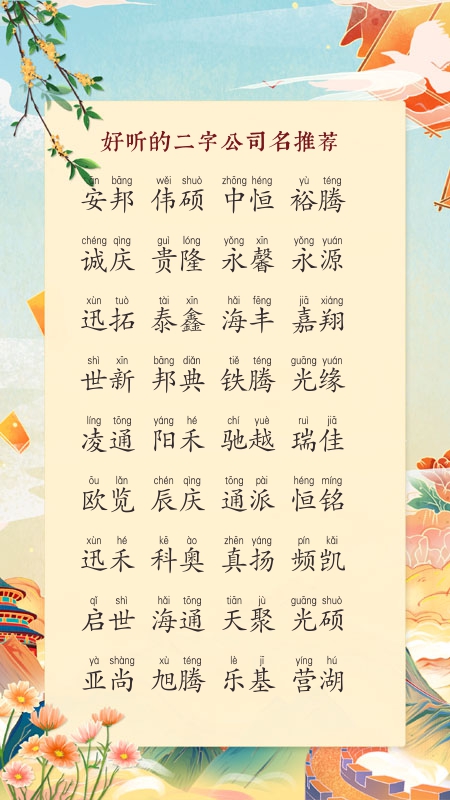 好听的二字公司名推荐
ān bāng wěi shuò zhōng héng yù téng
安邦 伟硕 中恒 裕腾
chéng qìng guì lóng yǒng xīn yǒng yuán
诚庆 贵隆 永馨 永源
xùn tuò tài xīn hǎi fēng jiā xiáng
迅拓 泰鑫 海丰 嘉翔
shì xīn bāng diǎn tiě téng guāng yuán
世新 邦典 铁腾 光缘
líng tōng yáng hé chí yuè ruì jiā
凌通 阳禾 驰越 瑞佳
ōu lǎn chén qìng tōng pài héng míng
欧览 辰庆 通派 恒铭
xùn hé kē ào zhēn yáng pín kǎi
迅禾 科奥 真扬 频凯
qǐ shì hǎi tōng tiān jù guāng shuò
启世 海通 天聚 光硕
yà shàng xù téng lè jī yíng hú
亚尚 旭腾 乐基 营湖